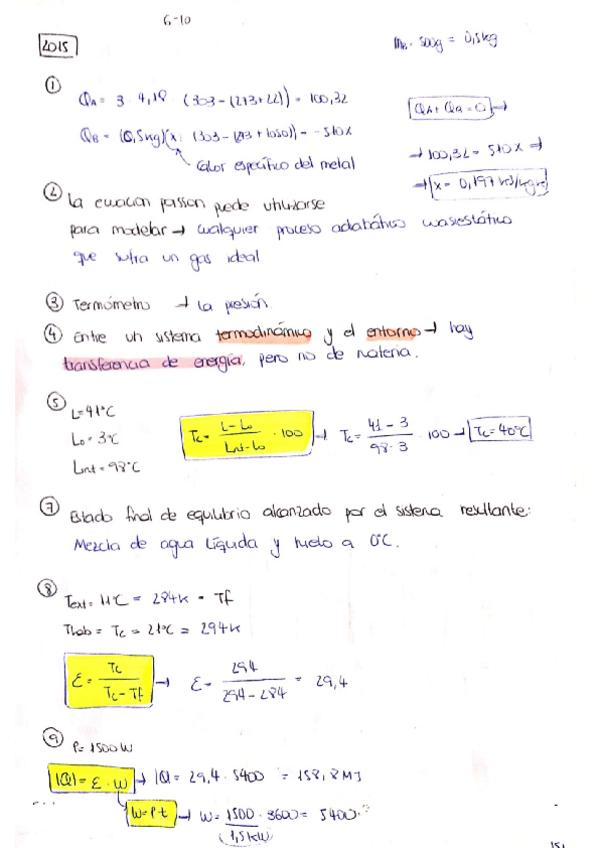 6-10
2015
500g = 0,5kg
①
QA = 3 · 4,18 · (303-(273+22)) = 100,32
QA + QB = 0 →
QB = (0,5kg)(x · (303-(273+1050)) = -510x
Calor específico del metal
→ 100,32 = 510x →
→ x = 0,197
② La ecuación poisson puede utilizarse
para modelar → cualquier proceso adiabático cuasiestático
que sufra un gas ideal
③ Termómetro → la presión.
④ Entre un sistema termodinámico y el entorno → hay
transferencia de energía, pero no de materia.
⑤
L=41°C
L0 = 3°C
Lnt = 98°C
Tc = L-L0 / Lnt-L0 · 100 → Tc = 41-3 / 98-3 · 100 → Tc = 40°C
⑦ Estado final de equilibrio alcanzado por el sistema resultante:
Mezcla de agua líquida y hielo a 0°C.
⑧
Text = 11°C = 284K = Tf
Thab = Tc = 21°C = 294K
ε = Tc / Tc-Tf → ε = 294 / 294-284 = 29,4
⑨
P = 1500W
|Q| = ε · W → |Q| = 29,4 · 5400 = 158,8MJ
W = P·t → W = 1500 · 3600 = 5400
(1,5kW)
151